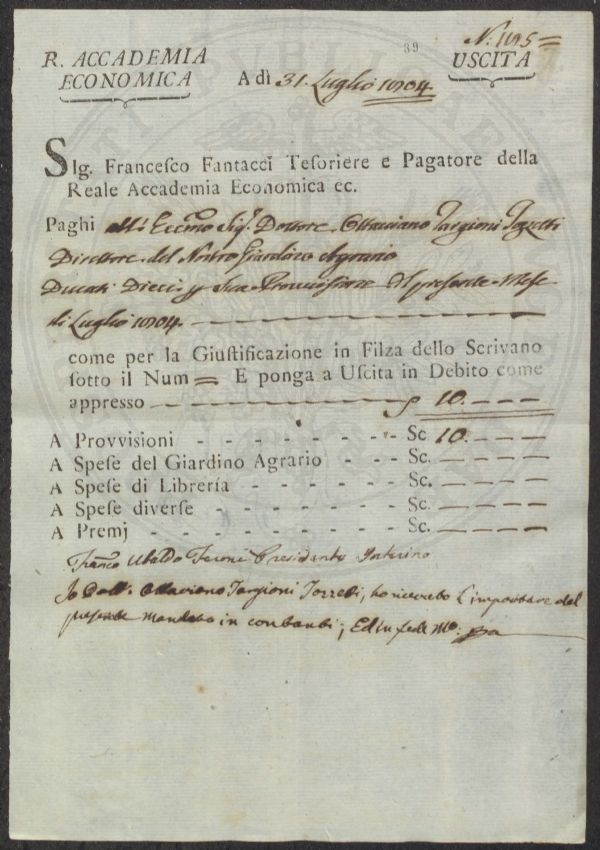 39
N. 1195
R. ACCADEMIA
ECONOMICA
A dì 31. Luglio 1804
USCITA
SIg. Francefco Fantacci Teforiere e Pagatore della
Reale Accademia Economica ec.
Paghi all' Eccmo Sigr. Dottore Ottaviano Targioni Tozzetti
Direttore del Nostro Giardino Agrario
Ducati Dieci p Sua Provvisione del presente Mese
di Luglio 1804.
come per la Giuftificazione in Filza dello Scrivano
fotto il Num E ponga a Ufcita in Debito come
appresso 10.
A Provvisioni - - - - - - - Sc 10.
A Spefe del Giardino Agrario - - - Sc.
A Spefe di Librería - - - - - - Sc.
A Spefe diverfe - - - - - - - Sc.
A Premj - - - - - - - - - Sc.
Franco Ubaldo Feroni Presidente Interino
Io Dott. Ottaviano Targioni Tozzetti, ho ricevuto l'importare del
presente Mandato in contanti; Ed in fede Mo: Pa